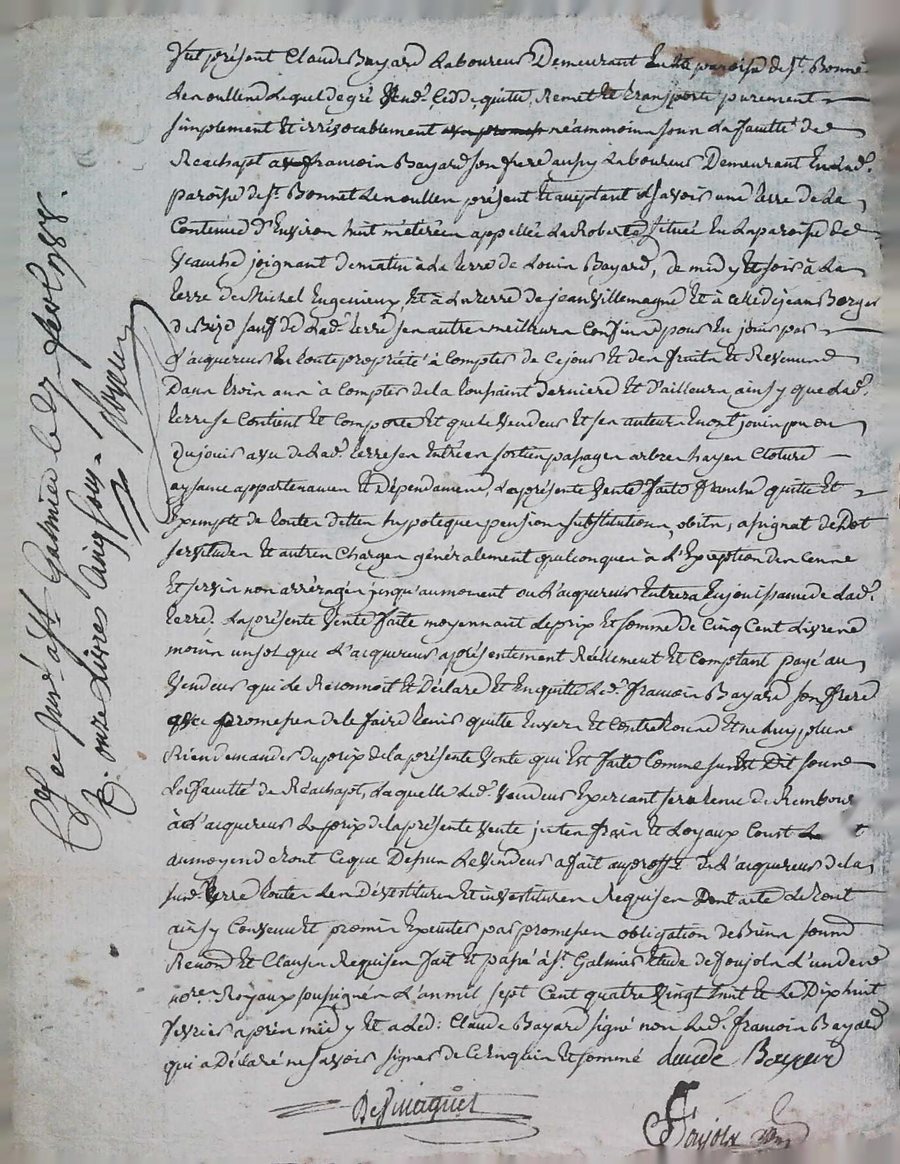 fut présent Claude Bayard Laboureur Demeurant En la paroisse de St. Bonnet
Les oullend Lequel de gré Vend. Cedde quitte, Remet Et transporte purement
simplement Et irrévocablement néammoins sous la faculté de
Reachapt a francois Bayard son frere aussy Laboureur Demeurant En lad.
paroisse de St. Bonnet Les oullen présent Et aceptant Sçavoir une terre de la
Contenue D'Environ huit méterées appellée La Roberte, située En la paroisse de
Veauche joignant de matin à la terre de Louis Bayard, de midy Et soir à La
terre de Michel Eugenieux, Et à La terre de jean Villemagne Et à celle de jean Berger
de Bize sauf de Lad. terre ses autres meilleurs Confins pour En jouir par
L'aquereur En toute propriété à Compter de Ce jour Et des fruits Et Revenus
Dans trois ans à Compter de la toussaint derniere Et D'ailleurs ainsy que Lad.
terre se Contient Et Comporte Et que le Vendeur Et ses auteurs En ont joui pu ou
du jouir avec de Lad. terre ses Entrées sorties passages arbres hayes Cloture
aysances appartenances Et Dépendances, La présente Vente faite franche quitte Et
Exempte de toutes dettes hypoteques pension substitutions, obits, assignat de Dot
servitudes Et autres Charges généralement quelconques à L'Exception des Cens
Et servis non arréragés jusqu'au moment ou L'acquereur Entrera En jouissance de Lad.
terre. La présente Vente faite moyennant Le prix Et somme de Cinq Cent Livres
moins un sol que L'acquereur a présentement Réellement Et Comptant payé au
Vendeur qui Le Reconnoit Et Déclare Et En quitte Led. francois Bayard son frere
avec promesses de le faire tenir quitte Envers Et Contre tous Et ne luy plus
Rien demander du prix de la présente Vente qui Est faite Comme sus Est Dit sous
La faculté de Réachapt, Laquelle Led. Vendeur Exercant sera tenu de Rembourser
à L'acquereur Le prix de la présente Vente justes frais Et Loyaux Coust
au moyen de tout Ce que Dessus Le Vendeur a fait au proffit de L'acquereur de la
susd. terre toutes Les Devestitures Et investitures Requises Dont acte Le tout
ainsy Convenu Et promis Executer par promesses obligation de Biens soumis
Renon. Et Clauses Requises fait Et passé à St. Galmier Etude de Soujols L'un des
nores. Royaux soussignés L'an mil sept Cent quatre Vingt huit Et Le Dix huit
fevrier après midy Et a Led: Claude Bayard signé non Led. francois Bayard
qui a Déclaré ne sçavoir signer de Ce Enquis Et sommé Claude Bayard
DeVinagues
Soujols
St Galmier le dix fevr. 1788.
R. onze Livres Cinq sous